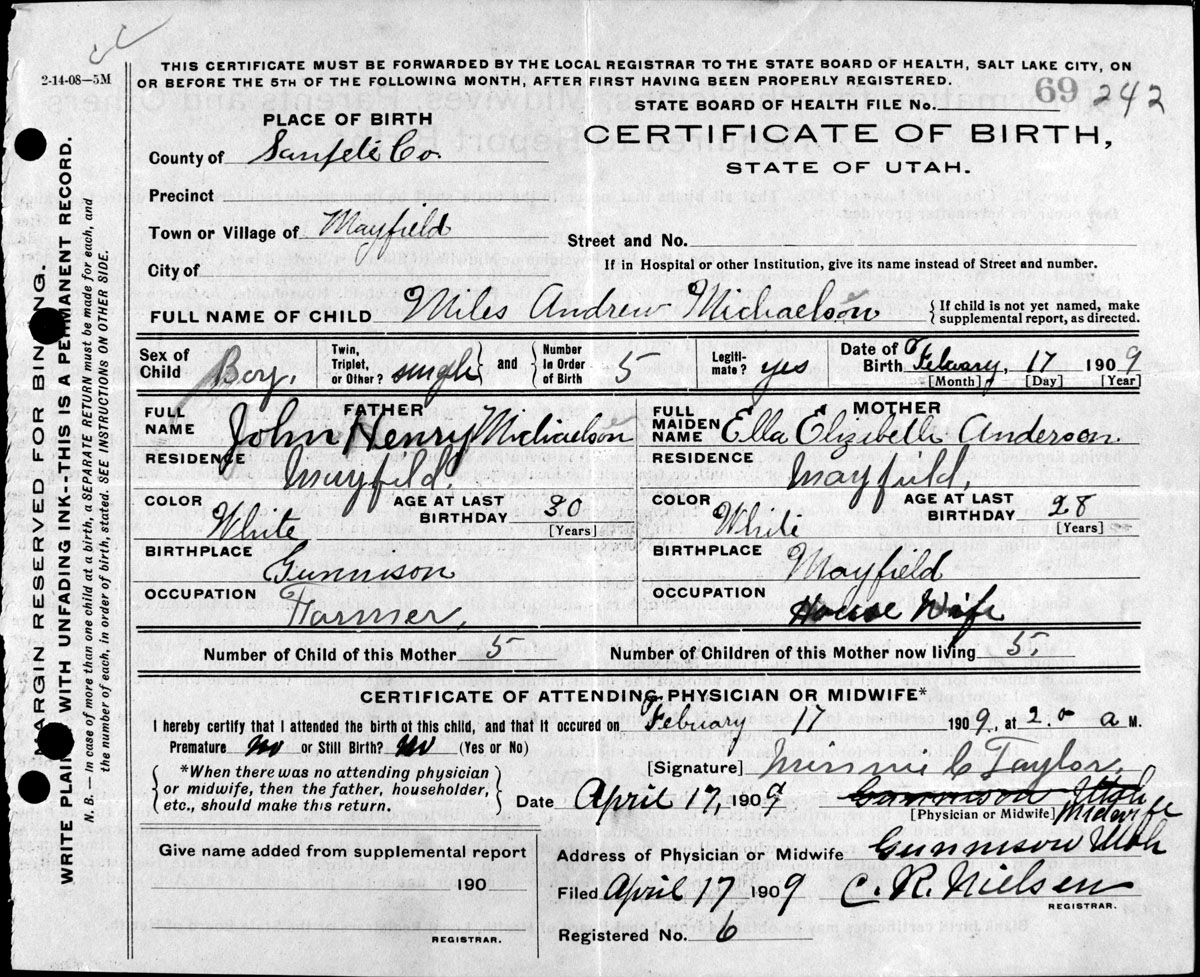 2-14-08—5M
THIS CERTIFICATE MUST BE FORWARDED BY THE LOCAL REGISTRAR TO THE STATE BOARD OF HEALTH, SALT LAKE CITY, ON
OR BEFORE THE 5TH OF THE FOLLOWING MONTH, AFTER FIRST HAVING BEEN PROPERLY REGISTERED.
STATE BOARD OF HEALTH FILE No. 69 242
PLACE OF BIRTH
CERTIFICATE OF BIRTH,
STATE OF UTAH.
County of Sanpete Co.
Precinct
Town or Village of Mayfield
Street and No.
City of
If in Hospital or other Institution, give its name instead of Street and number.
FULL NAME OF CHILD Miles Andrew Michaelson
{If child is not yet named, make
supplemental report, as directed.
Sex of Child Boy.
Twin, Triplet, or Other? single } and { Number In Order of Birth 5
Legiti-mate? yes
Date of Birth Febuary, 17 1909
[Month] [Day] [Year]
FATHER
FULL NAME John Henry Michaelson
RESIDENCE Mayfield.
COLOR White
AGE AT LAST BIRTHDAY 30 [Years]
BIRTHPLACE Gunnison
OCCUPATION Farmer,
MOTHER
FULL MAIDEN NAME Ella Elizibeth Anderson.
RESIDENCE Mayfield,
COLOR White
AGE AT LAST BIRTHDAY 28 [Years]
BIRTHPLACE Mayfield
OCCUPATION House Wife
Number of Child of this Mother 5
Number of Children of this Mother now living 5
CERTIFICATE OF ATTENDING PHYSICIAN OR MIDWIFE*
I hereby certify that I attended the birth of this child, and that it occured on Febuary 17 1909, at 2.0 a M.
Premature No or Still Birth? No (Yes or No)
{ *When there was no attending physician
or midwife, then the father, householder,
etc., should make this return. }
[Signature] Minnie C Taylor,
Date April 17, 1909 Gunnison Utah
[Physician or Midwife] Midwife
Give name added from supplemental report
190
REGISTRAR.
Address of Physician or Midwife Gunnison Utah
Filed April 17 1909 C. R. Nielsen
REGISTRAR.
Registered No. 6
MARGIN RESERVED FOR BINDING.
WRITE PLAINLY WITH UNFADING INK--THIS IS A PERMANENT RECORD.
N. B.—In case of more than one child at a birth, a SEPARATE RETURN must be made for each, and
the number of each, in order of birth, stated. SEE INSTRUCTIONS ON OTHER SIDE.